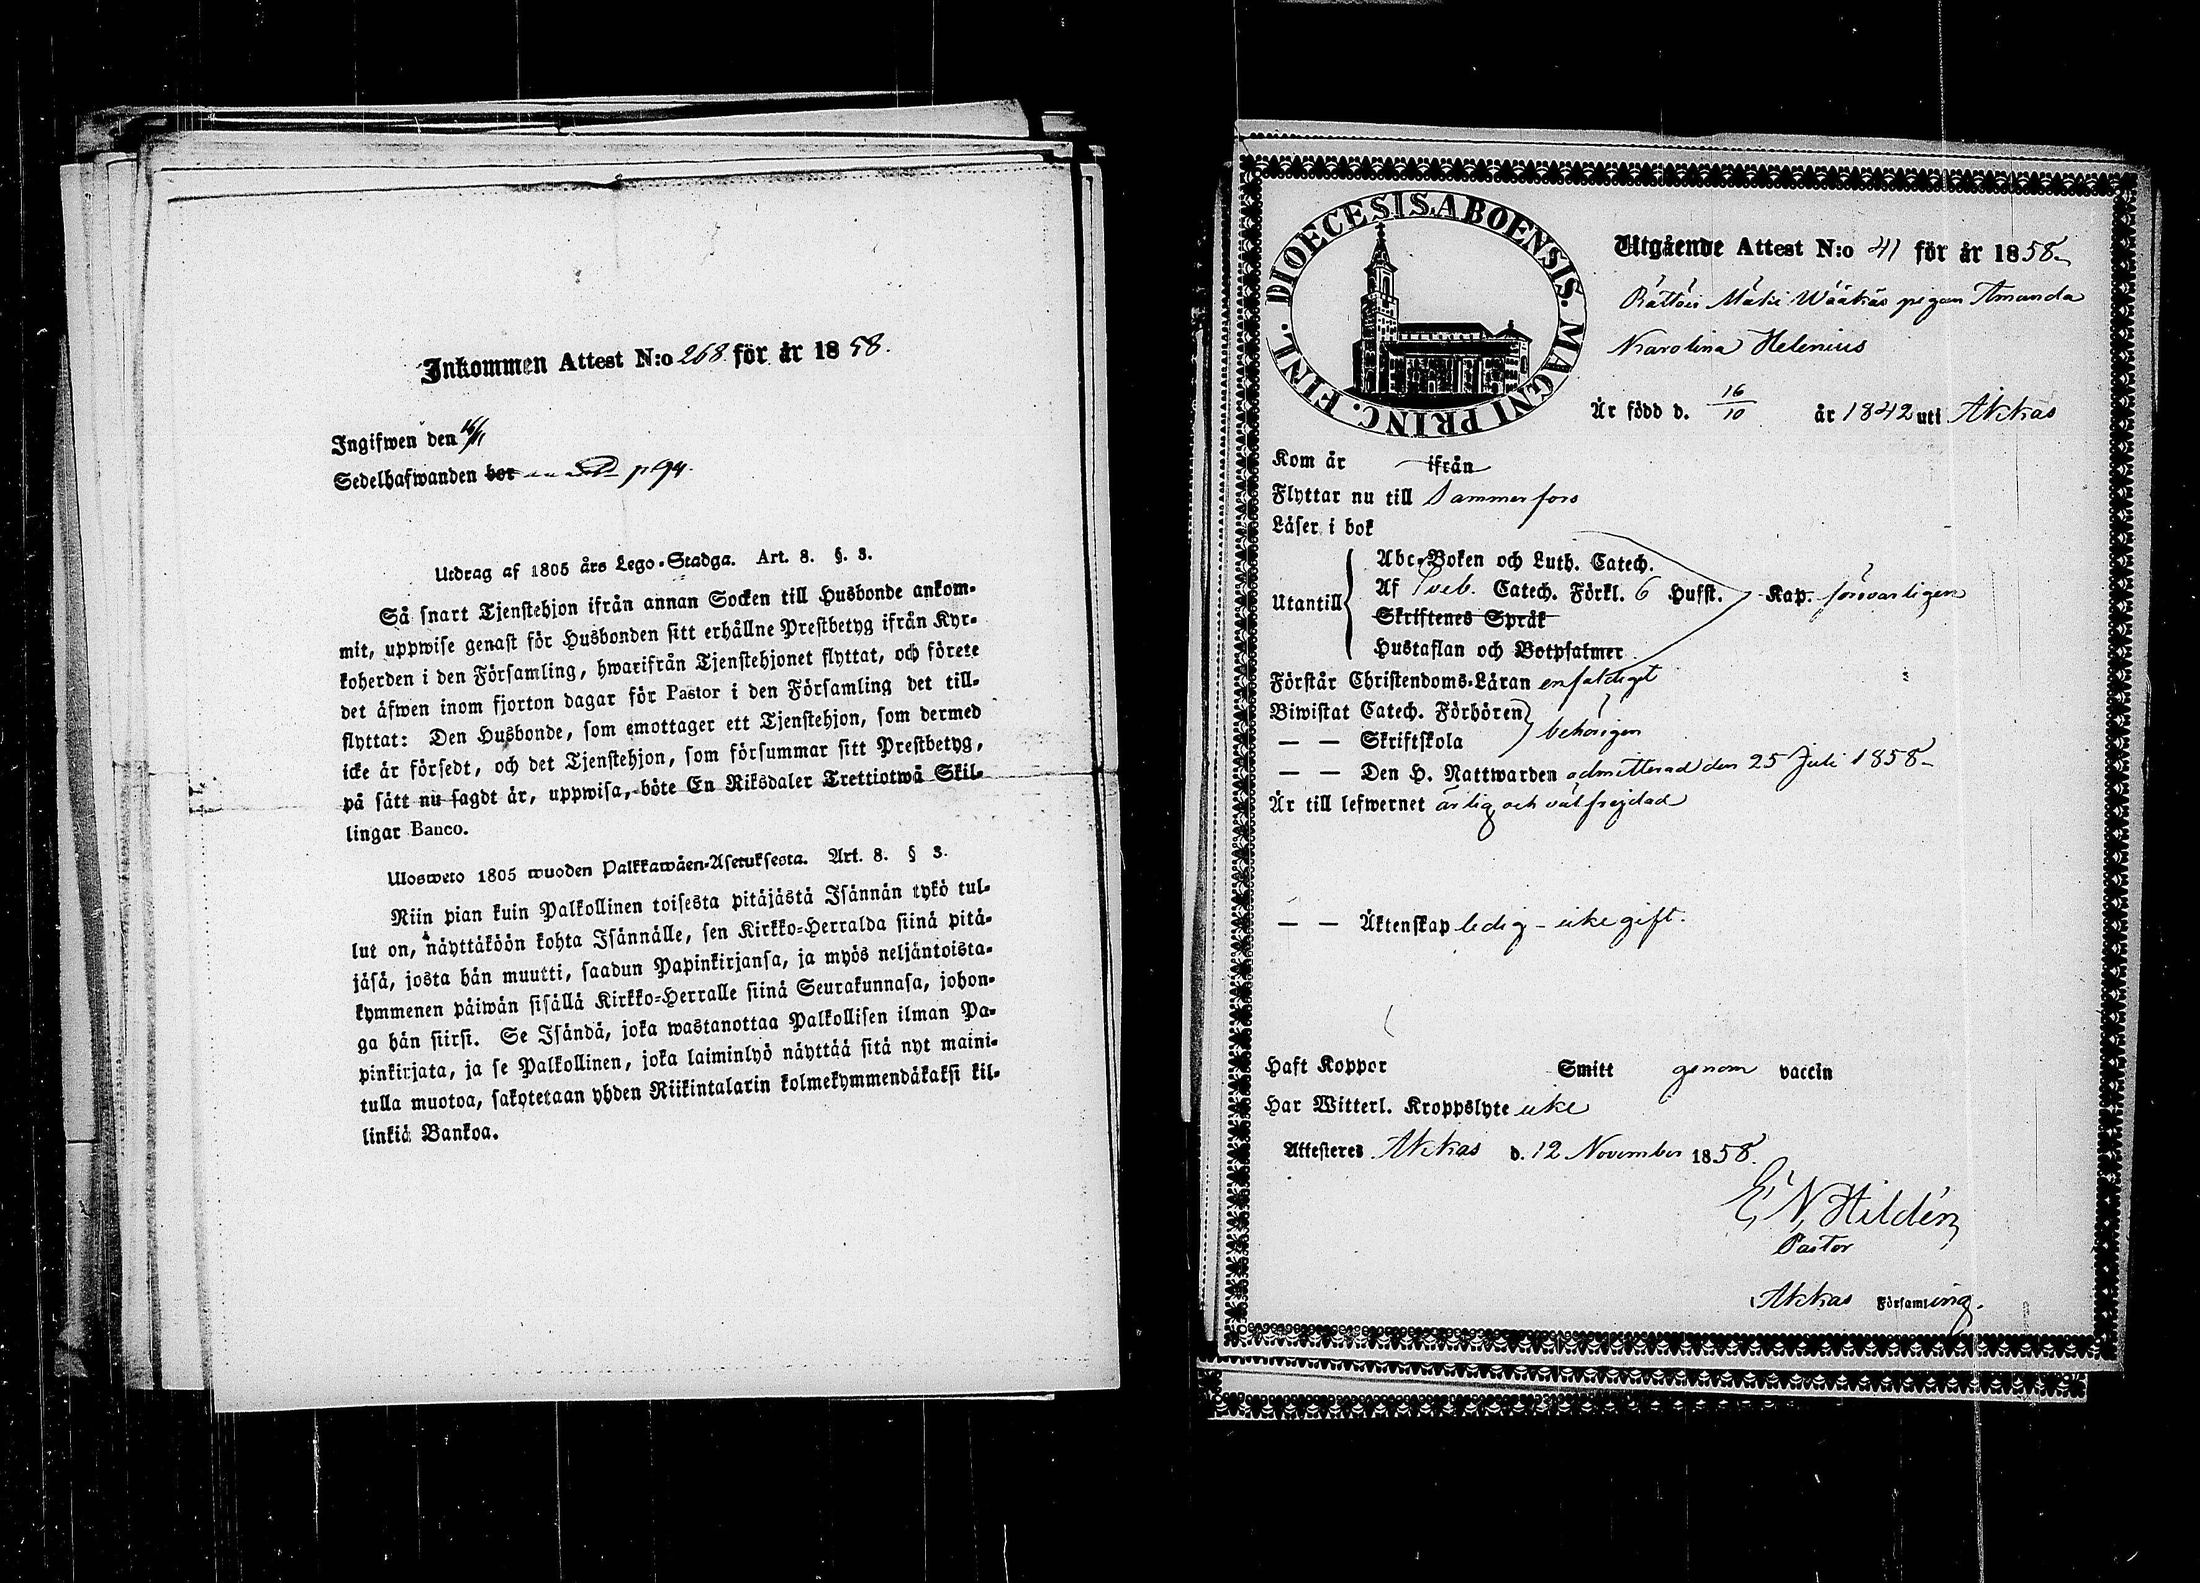 Inkommen Attest N:o 268. för år 1858.
Ingifwen den 16/11
Sedelhafwanden bor p 94.
Utdrag af 1805 års Lego-Stadga. Art. 8. §. 3.
Så snart Tjenstehjon ifrån annan Socken till Husbonde ankom-
mit, uppwise genast för Husbonden sitt erhållne Prestbetyg ifrån Kyr-
koherden i den Församling, hwarifrån Tjenstehjonet flyttat, och förete
det äfwen inom fjorton dagar för Pastor i den Församling det till-
flyttat: Den Husbonde, som emottager ett Tjenstehjon, som dermed
icke är försedt, och det Tjenstehjon, som försummar sitt Prestbetyg,
på sätt nu sagdt är, uppwisa, böte En Riksdaler Trettiotwå Skil-
lingar Banco.
Ulosweto 1805 wuoden Palkkawäen-Asetuksesta. Art. 8. § 3.
Niin pian kuin Palkollinen toisesta pitäjästä Isännän tykö tul-
lut on, näyttäköön kohta Isännälle, sen Kirkko-Herralda siinä pitä-
jäsä, josta hän muutti, saadun Papinkirjansa, ja myös neljäntoista-
kymmenen päiwän sisällä Kirkko-Herralle siinä Seurakunnasa, johon-
ga hän siirsi. Se Isändä, joka wastanottaa Palkollisen ilman Pa-
pinkirjata, ja se Palkollinen, joka laiminlyö näyttää sitä nyt maini-
tulla muotoa, sakotetaan yhden Riikintalarin kolmekymmendäkaksi kil-
linkiä Bankoa.
DIOECESIS ABOENSIS. MAGNI PRINC. FINL.
Utgående Attest N:o 41 för år 1858
Mäki Wääkäs pigan Amanda
Karolina Helenius
Är född d. 16/10 år 1842 uti Akkas
Kom år ifrån
Flyttar nu till Tammerfors
Läser i bok
Utantill
Abc-Boken och Luth. Catech.
Af Sveb. Catech. Förkl. 6 Hufst. Kap. försvarligen
Skriftenes Språk
Hustaflan och Botpsalmer
Förstår Christendoms-Läran enfaldigt
Biwistat Catech. Förhören
— — Skriftskola behörigen
— — Den H. Nattwarden admitterad den 25 Juli 1858
Är till lefwernet ärlig och välfrejdad
— — Äktenskap ledig - icke gift.
Haft Koppor Smitt genom vaccin
Har Witterl. Kroppslyte icke
Attesteres Akkas d. 12 November 1858.
E. N. Hildén
Pastor
i Akkas Församling.